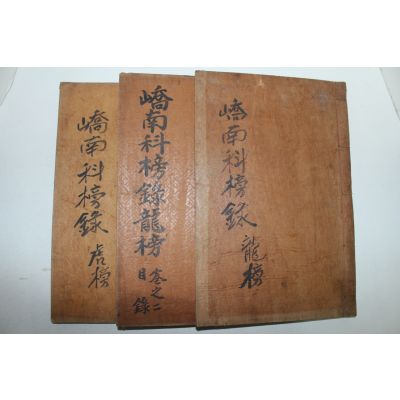 嶠南科榜錄 龍榜
嶠南科榜錄龍榜 卷之二
目錄
嶠南科榜錄 虎榜